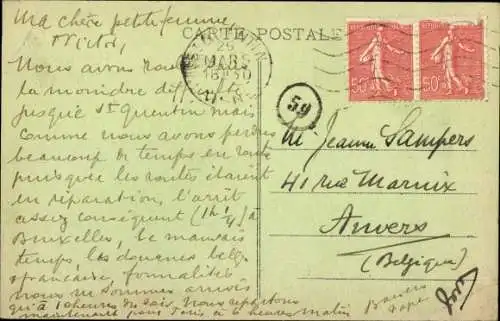 Ma chère petite femme,
Victor,
Nous avons
la moindre
jusque St Quentin mais
comme nous avons perdu
beaucoup de temps en route
puisque les routes étaient
en réparation, l'arrêt
assez conséquent (1h 1/4) à
Bruxelles, le mauvais
temps les douanes belge
française, formalités
nous ne sommes arrivés
qu'à heures du soir. Nous repartons
maintenant pour Paris à 6 heures matin
CARTE POSTALE
25
MARS
18 30
59
50c
50c
M Jeanne Sampers
41 rue Marnix
Anvers
(Belgique)
Baisers
Papa